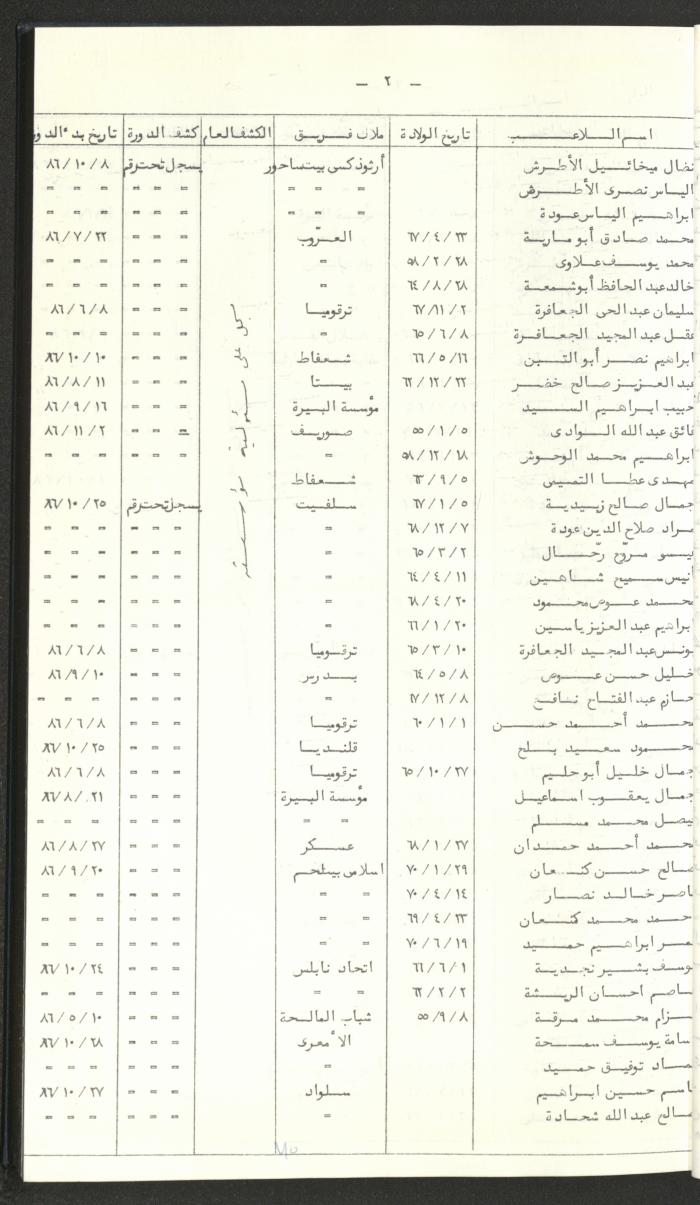 — ٢ —
اسم اللاعب تاريخ الولادة ملاك فريق الكشف العام كشف الدورة تاريخ بدء الدو
نضال ميخائيل الأطرش أرثوذكسي بيت ساحور يسجل تحت رقم ٨٦/١٠/٨
الياس نصرى الأطرش = = = = = = = = =
ابراهيم الياس عودة = = = = = = = = =
محمد صادق أبو مارية ٦٧/٤/٢٣ العروّب = = = ٨٦/٧/٢٢
محمد يوسف علاوى ٥٨/٢/٢٨ = = = = = = =
خالد عبد الحافظ أبو شمعة ٦٤/٨/٢٨ = = = = = = =
سليمان عبد الحى الجعافرة ٦٧/١١/٢ ترقوميا = = = ٨٦/٦/٨
عقل عبد المجيد الجعافرة ٦٥/٦/٨ = = = = = = =
ابراهيم نصر أبو التين ٦٦/٥/١٦ شعفاط = = = ٨٦/١٠/١٠
عبد العزيز صالح خضر ٦٢/١٢/٢٢ بيتا = = = ٨٦/٨/١١
حبيب ابراهيم السيد مؤسسة البيرة = = = ٨٦/٩/١٦
فائق عبد الله الوادى ٥٥/١/٥ صوريف = = = ٨٦/١١/٢
ابراهيم محمد الوحوش ٥٨/١٢/٢٨ = = = = = = =
مهدى عطا التميمى ٦٣/٩/٥ شعفاط
جمال صالح زبيدية ٦٧/١/٥ سلفيت يسجل تحت رقم ٨٦/١٠/٢٥
مراد صلاح الدين عودة ٦٨/١٢/٧ = = = = = = =
مروّح رحّال ٦٥/٣/٢ = = = = = = =
أنيس سميح شاهين ٦٤/٤/١١ = = = = = = =
محمد عوض محمود ٦٨/٤/٢٠ = = = = = = =
ابراهيم عبد العزيز ياسين ٦٦/١/٢٠ = = = = = = =
يونس عبد المجيد الجعافرة ٦٥/٣/١٠ ترقوميا = = = ٨٦/٦/٨
خليل حسن عوض ٦٤/٥/٨ بدرس = = = ٨٦/٩/١٠
حازم عبد الفتاح نافع ٦٧/١٢/٨ = = = = = = =
محمد أحمد حسن ٦٠/١/١ ترقوميا = = = ٨٦/٦/٨
محمود سعيد بلح قلنديا = = = ٨٦/١٠/٢٥
جمال خليل أبو حليم ٦٥/١٠/٢٧ ترقوميا = = = ٨٦/٦/٨
جمال يعقوب اسماعيل مؤسسة البيرة = = = ٨٦/٨/٢١
يصل محمد مسلم = = = = = = = =
محمد أحمد حمدان ٦٨/١/٢٧ عسكر = = = ٨٦/٨/٢٧
صالح حسن كنعان ٧٠/١/٢٩ اسلامى بيتلحم = = = ٨٦/٩/٢٠
اصر خالد نصار ٧٠/٤/١٤ = = = = = = = =
حمد محمد كنعان ٦٩/٤/٢٣ = = = = = = = =
مر ابراهيم حميد ٧٠/٦/١٩ = = = = = = = =
وسف بشير نجدية ٦٦/٦/١ اتحاد نابلس = = = ٨٦/١٠/٢٤
اصم احسان الريشة ٦٢/٢/٢ = = = = = = = =
زام محمد مرقة ٥٥/٩/٨ شباب المالحة = = = ٨٦/٥/١٠
سامة يوسف سمحة الأمعرى = = = ٨٦/١٠/٢٨
ماد توفيق حميد = = = = = = =
اسم حسين ابراهيم سلواد = = = ٨٦/١٠/٢٧
صالح عبد الله شحادة = = = = = = =
سجل على